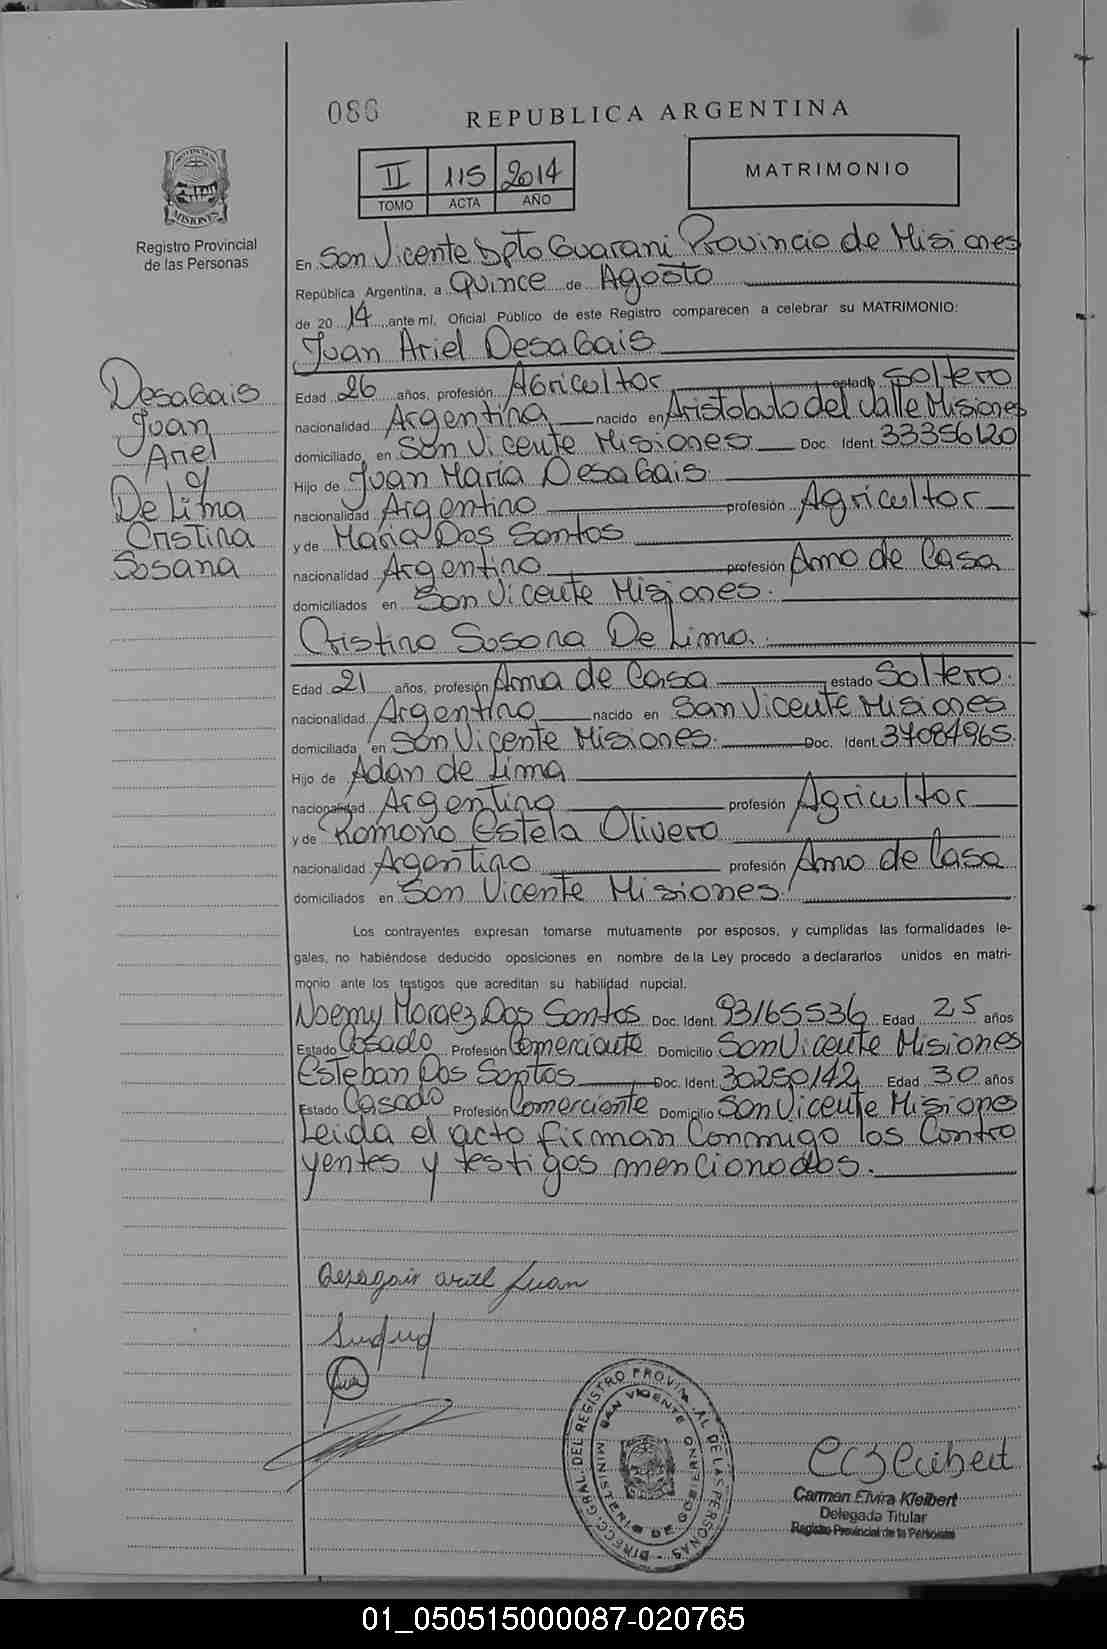 086
REPUBLICA ARGENTINA
II 115 2014
TOMO ACTA AÑO
MATRIMONIO
PROVINCIA
MISIONES
Registro Provincial
de las Personas
En San Vicente Dpto Guarani Provincia de Misiones
República Argentina, a Quince de Agosto
de 2014 ante mí, Oficial Público de este Registro comparecen a celebrar su MATRIMONIO:
Juan Ariel Desagais
Edad 26 años, profesión Agricultor estado Soltero
nacionalidad Argentina nacido en Aristobulo del Valle Misiones
domiciliado en San Vicente Misiones Doc. Ident. 33356120
Hijo de Juan Maria Desagais
nacionalidad Argentino profesión Agricultor
y de Maria Dos Santos
nacionalidad Argentino profesión Ama de Casa
domiciliados en San Vicente Misiones.
Cristina Sosana De Lima.
Edad 21 años, profesión Ama de Casa estado Soltero.
nacionalidad Argentina nacido en San Vicente Misiones
domiciliada en San Vicente Misiones. Doc. Ident. 37084965.
Hijo de Adan de Lima
nacionalidad Argentino profesión Agricultor
y de Romona Estela Olivero
nacionalidad Argentino profesión Ama de Casa
domiciliados en San Vicente Misiones.
Desagais
Juan
Ariel
y
De Lima
Cristina
Sosana
Los contrayentes expresan tomarse mutuamente por esposos, y cumplidas las formalidades le-
gales, no habiéndose deducido oposiciones en nombre de la Ley procedo a declararlos unidos en matri-
monio ante los testigos que acreditan su habilidad nupcial.
Noemy Moraez Dos Santos Doc. Ident. 93165536 Edad 25 años
Estado Casado Profesión Comerciante Domicilio San Vicente Misiones
Esteban Dos Santos Doc. Ident. 30250142 Edad 30 años
Estado Casado Profesión Comerciante Domicilio San Vicente Misiones
Leida el acto firman conmigo los Contra
yentes y testigos mencionados.
Desagais ariel Juan
DIRECC. GRAL. DEL REGISTRO PROVINCIAL DE LAS PERSONAS
SAN VICENTE
MINISTERIO DE GOBIERNO
Carmen Elvira Kleibert
Delegada Titular
Registro Provincial de la Personas
01_050515000087-020765